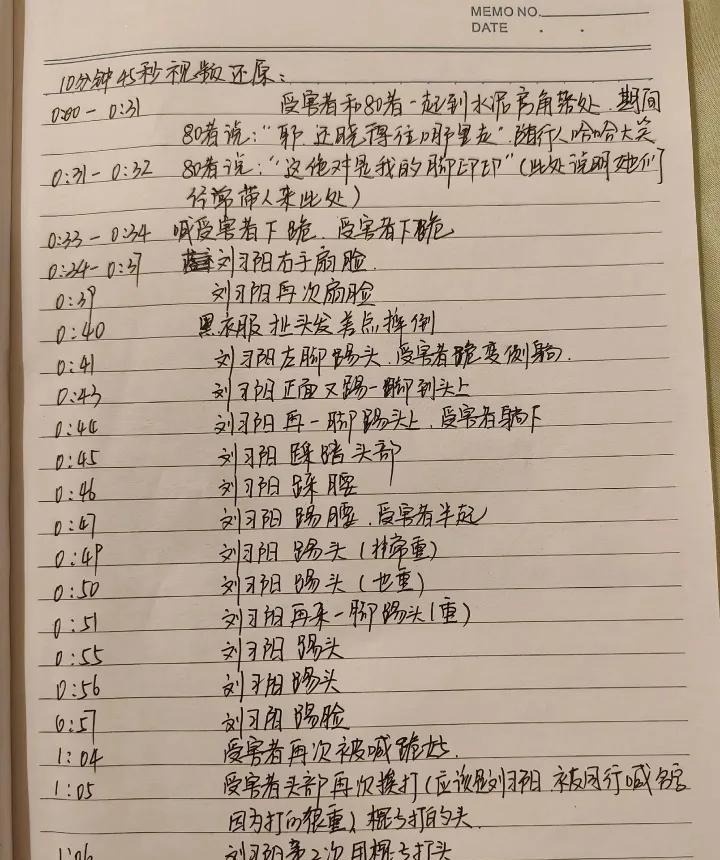 MEMO NO.
DATE . .
10分钟45秒视频还原：
0:00 - 0:31 受害者和80者一起到水泥房角落处.期间
80者说："耶.还晓得往哪里走"随行人哈哈大笑
0:31 - 0:32 80者说："这绝对是我的脚印印"（此处说明她们
经常带人来此处）
0:33 - 0:34 喊受害者下跪.受害者下跪
0:34 - 0:37 刘习阳右手扇脸.
0:39 刘习阳再次扇脸
0:40 黑衣服扯头发差点摔倒
0:41 刘习阳左脚踢头.受害者跪变侧躺.
0:43 刘习阳正面又踢一脚到头上
0:44 刘习阳再一脚踢头上.受害者躺下
0:45 刘习阳踩踏头部
0:46 刘习阳踩腰
0:47 刘习阳踢腰.受害者半起
0:49 刘习阳踢头（非常重）
0:50 刘习阳踢头（也重）
0:51 刘习阳再来一脚踢头（重）
0:55 刘习阳踢头
0:56 刘习阳踢头
0:57 刘习阳踢脸
1:04 受害者再次被喊跪好.
1:05 受害者头部再次挨打（应该是刘习阳.被同行喊名字
因为打的很重）棍子打的头.
1:06 刘习阳第2次用棍子打头